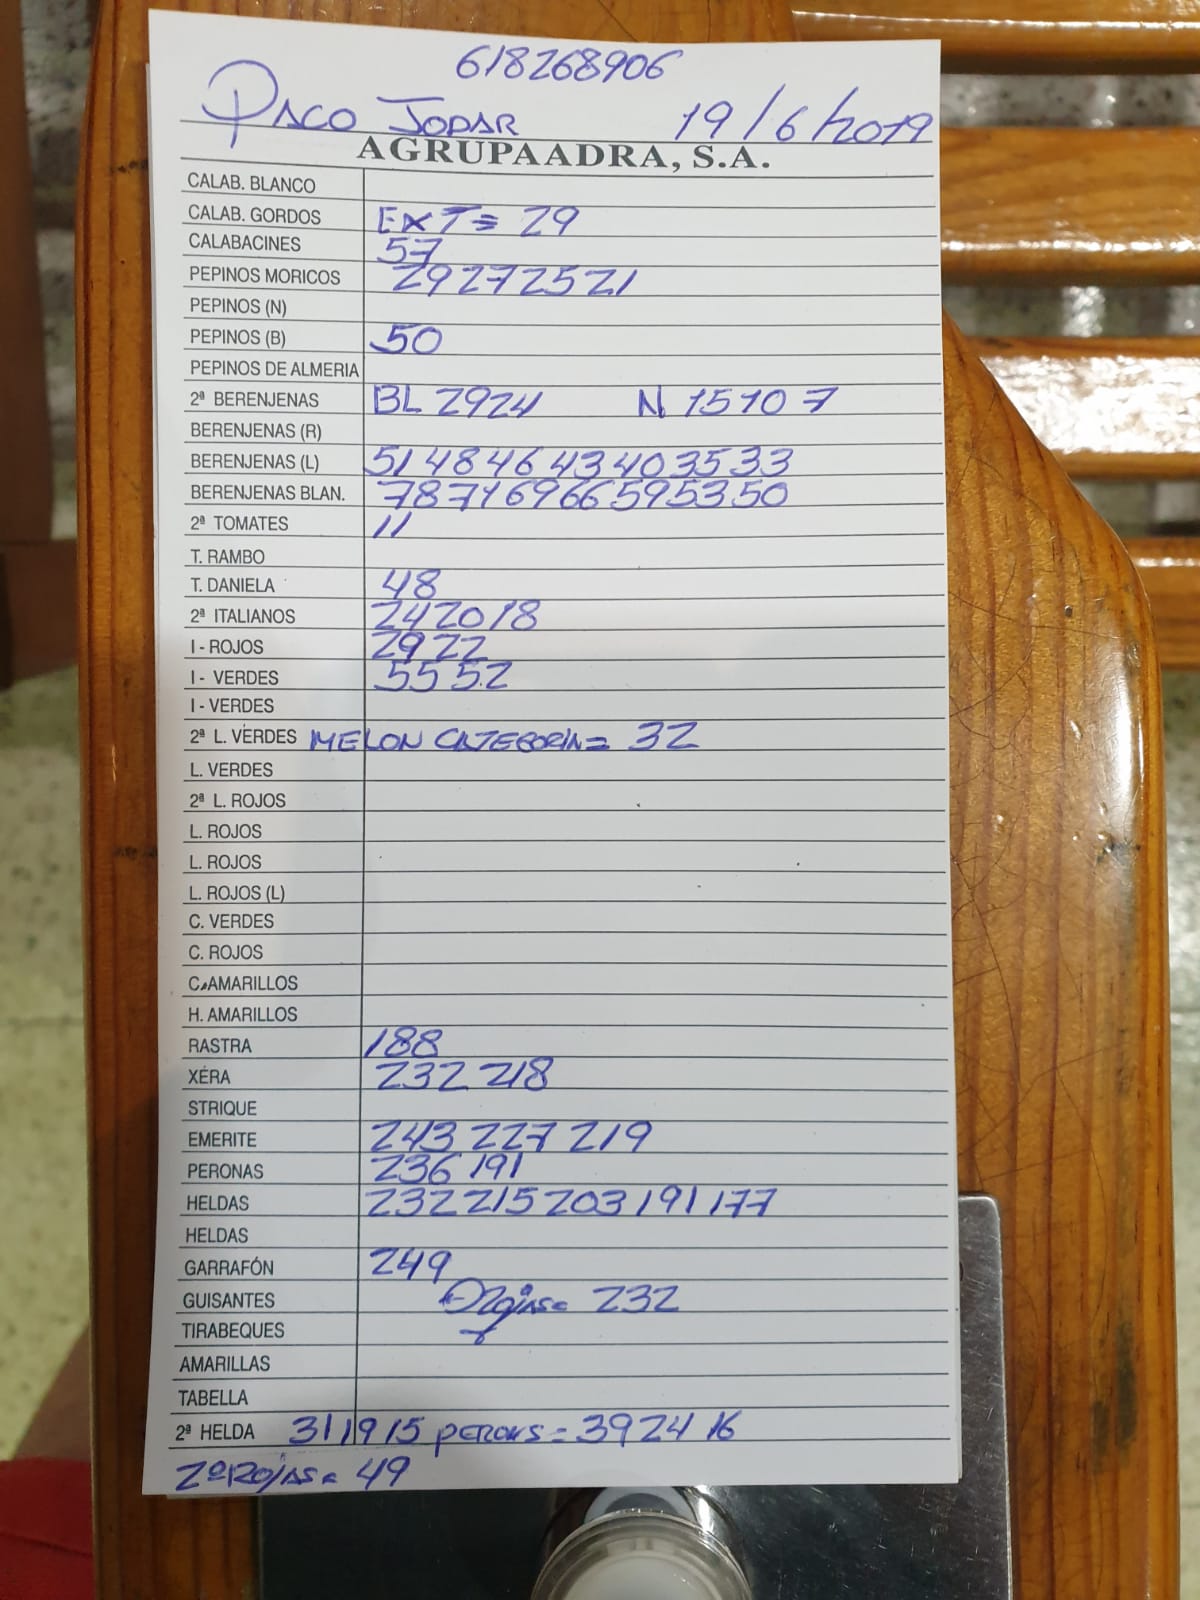 618268906
PACO JODAR 19/6/2019
AGRUPAADRA, S.A.
CALAB. BLANCO
CALAB. GORDOS EXT= 29
CALABACINES 57
PEPINOS MORICOS 29 27 25 21
PEPINOS (N)
PEPINOS (B) 50
PEPINOS DE ALMERIA
2ª BERENJENAS BL 29 24 N 15 10 7
BERENJENAS (R)
BERENJENAS (L) 51 48 46 43 40 35 33
BERENJENAS BLAN. 78 71 69 66 59 53 50
2ª TOMATES 11
T. RAMBO
T. DANIELA 48
2ª ITALIANOS 24 20 18
I - ROJOS 29 22
I - VERDES 55 52
I - VERDES
2ª L. VERDES MELON CATEGORIA= 32
L. VERDES
2ª L. ROJOS
L. ROJOS
L. ROJOS
L. ROJOS (L)
C. VERDES
C. ROJOS
C. AMARILLOS
H. AMARILLOS
RASTRA 188
XÉRA 232 218
STRIQUE
EMERITE 243 227 219
PERONAS 236 191
HELDAS 232 215 203 191 177
HELDAS
GARRAFÓN 249
GUISANTES ROJAS= 232
TIRABEQUES
AMARILLAS
TABELLA
2ª HELDA 31 19 15 PERONS= 39 24 16
2ª ROJAS= 49